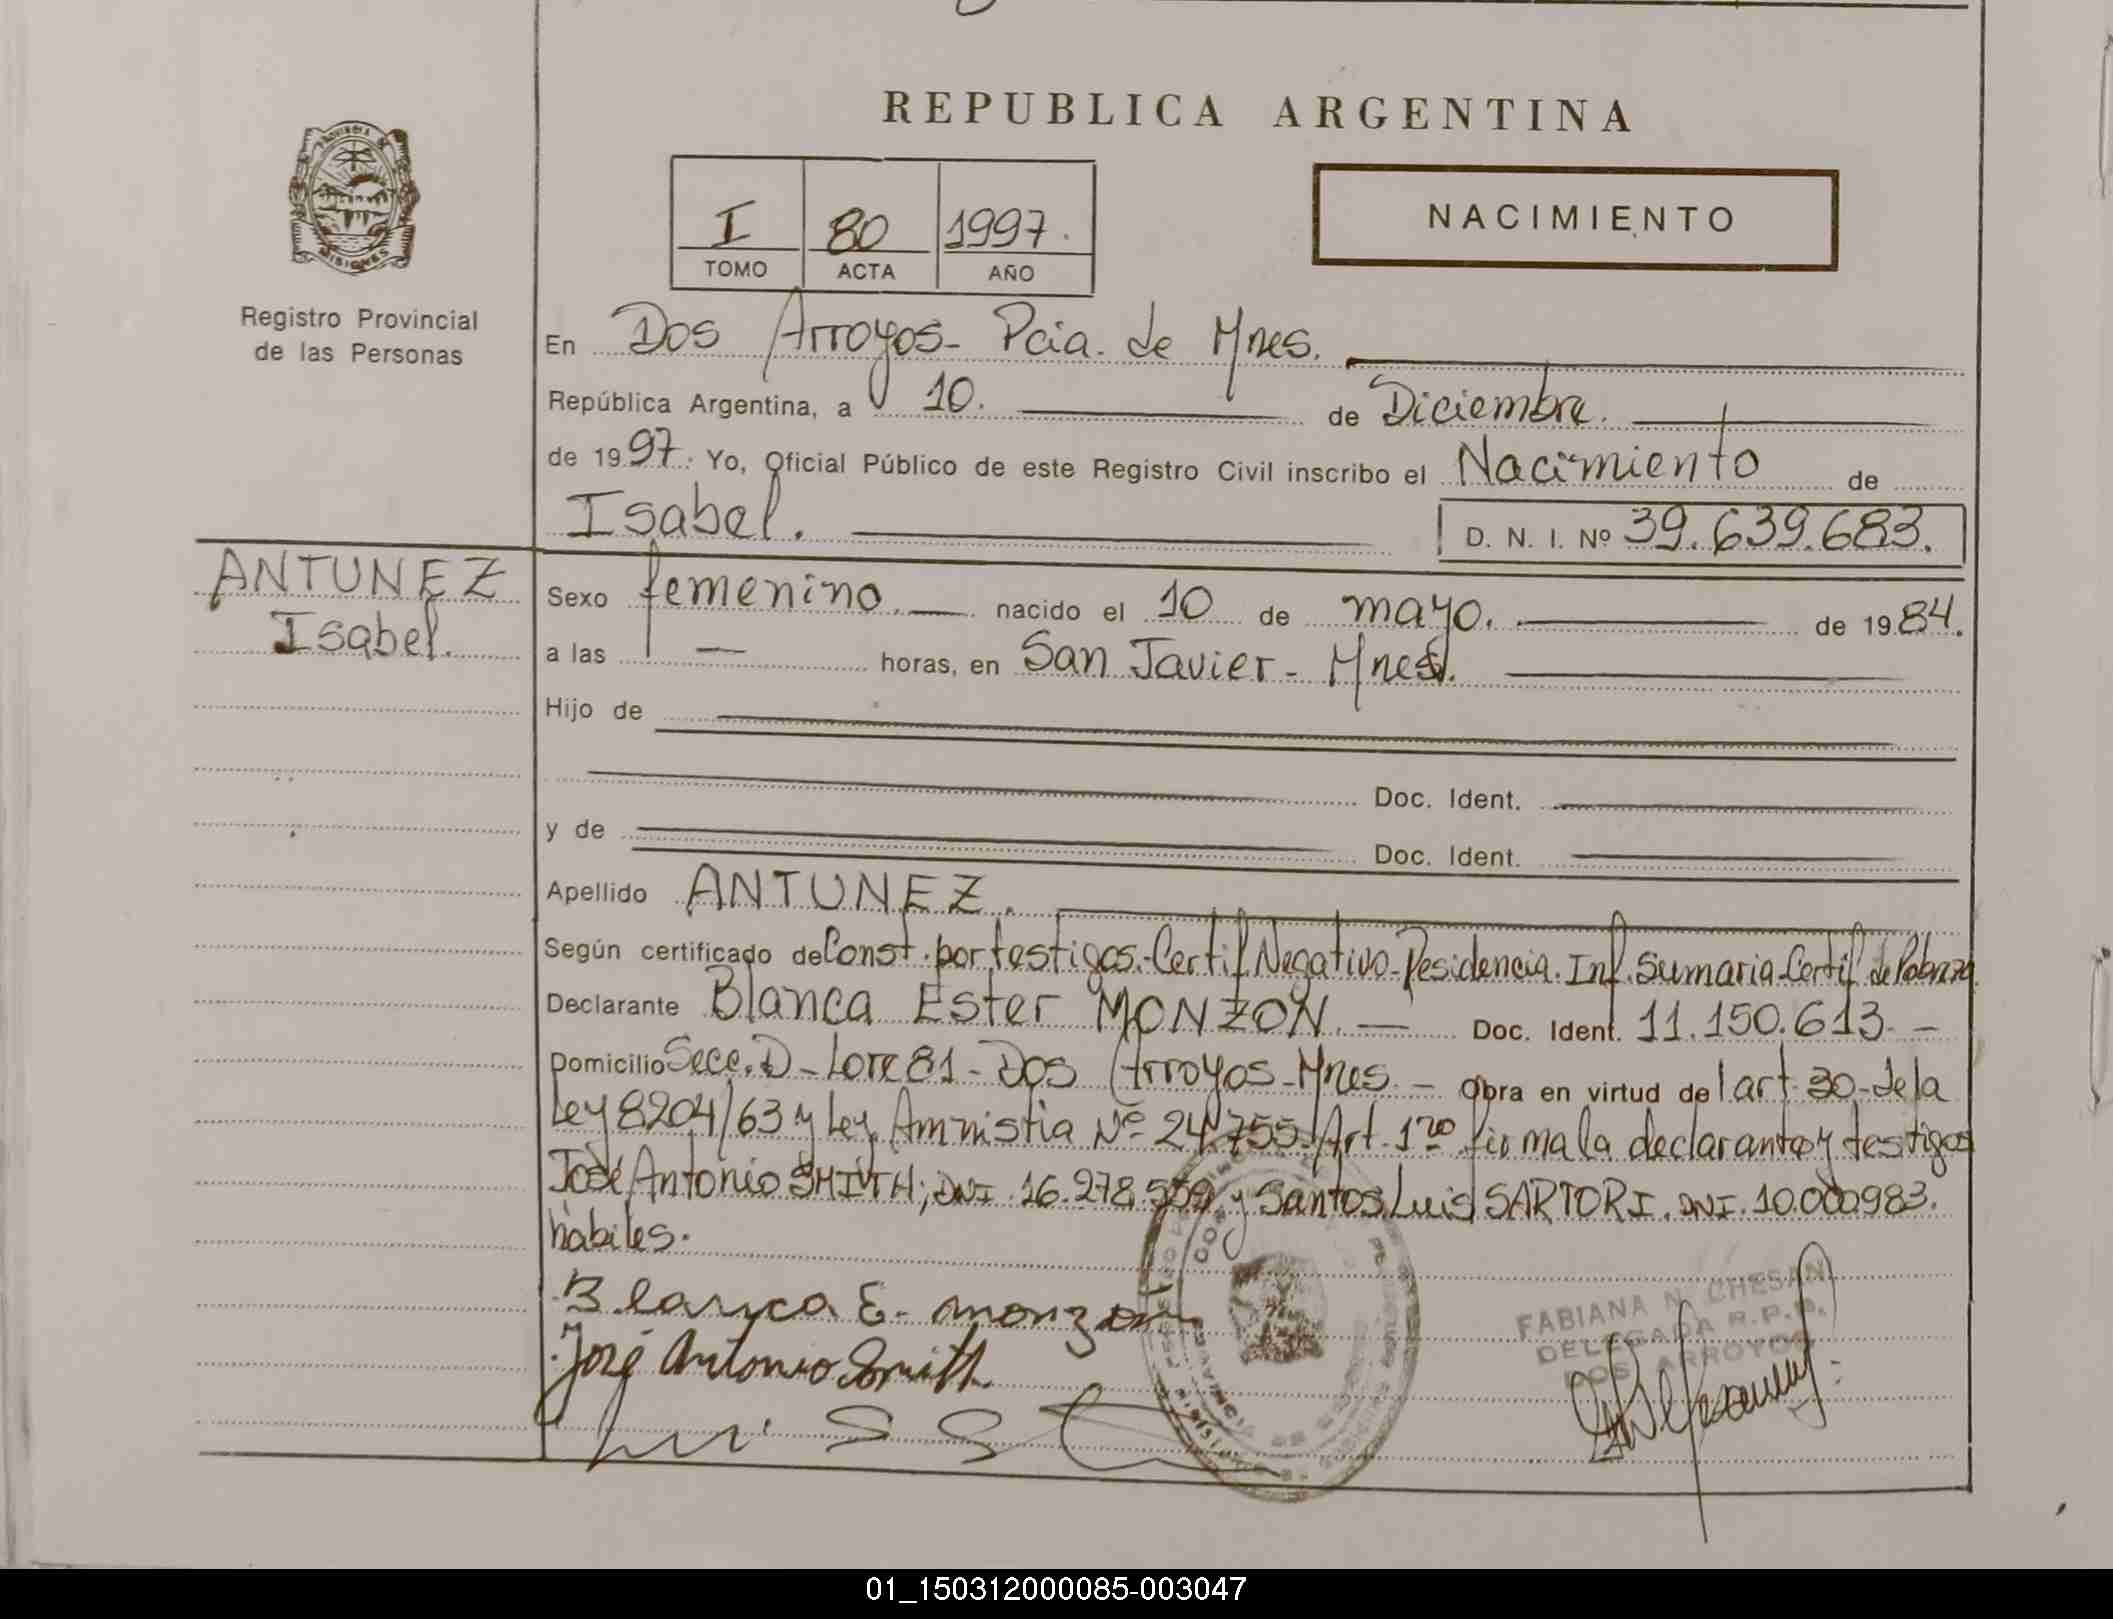 REPUBLICA ARGENTINA
PROVINCIA DE MISIONES
Registro Provincial
de las Personas
I 80 1997.
TOMO ACTA AÑO
NACIMIENTO
En Dos Arroyos - Pcia. de Mnes.
República Argentina, a 10. de Diciembre.
de 1997. Yo, Oficial Público de este Registro Civil inscribo el Nacimiento de
Isabel. D. N. I. Nº 39.639.683.
ANTUNEZ
Isabel.
Sexo femenino. nacido el 10 de mayo. de 1984.
a las — horas, en San Javier - Mnes.
Hijo de
Doc. Ident.
y de Doc. Ident.
Apellido ANTUNEZ.
Según certificado de Const. por testigos.-Certif Negativo-Residencia. Inf. Sumaria-Certif de Pobreza
Declarante Blanca Ester MONZON. — Doc. Ident. 11.150.613. —
Domicilio Secc. D - Lote 81 - Dos Arroyos - Mnes. — Obra en virtud del art. 30 de la
Ley 8204/63 y Ley Amnistia Nº 24.755. Art. 1ro firma la declarante y testigos
José Antonio SMITH; DNI. 16.278.559 y Santos Luis SARTORI. DNI. 10.000983.
hábiles.
Blanca E. monzon
José Antonio Smith
FABIANA N. CHESAN
DELEGADA R.P.P.
DOS ARROYOS
01_150312000085-003047